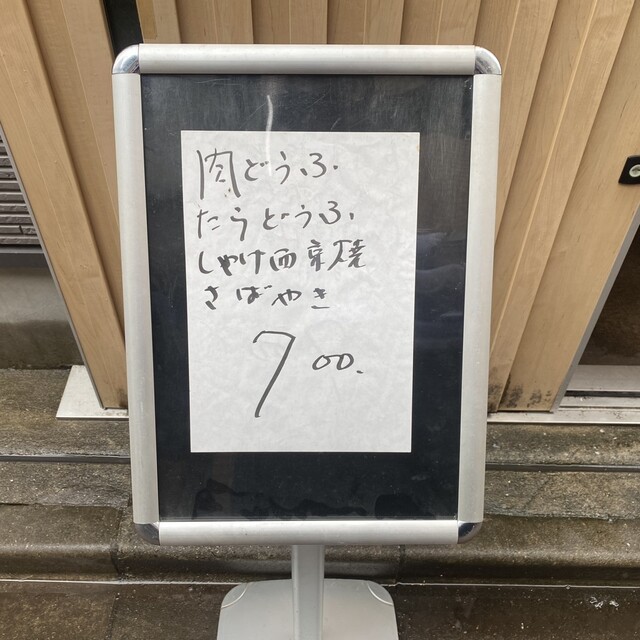 肉どうふ
たらどうふ
しゃけ西京焼
さばやき
700.